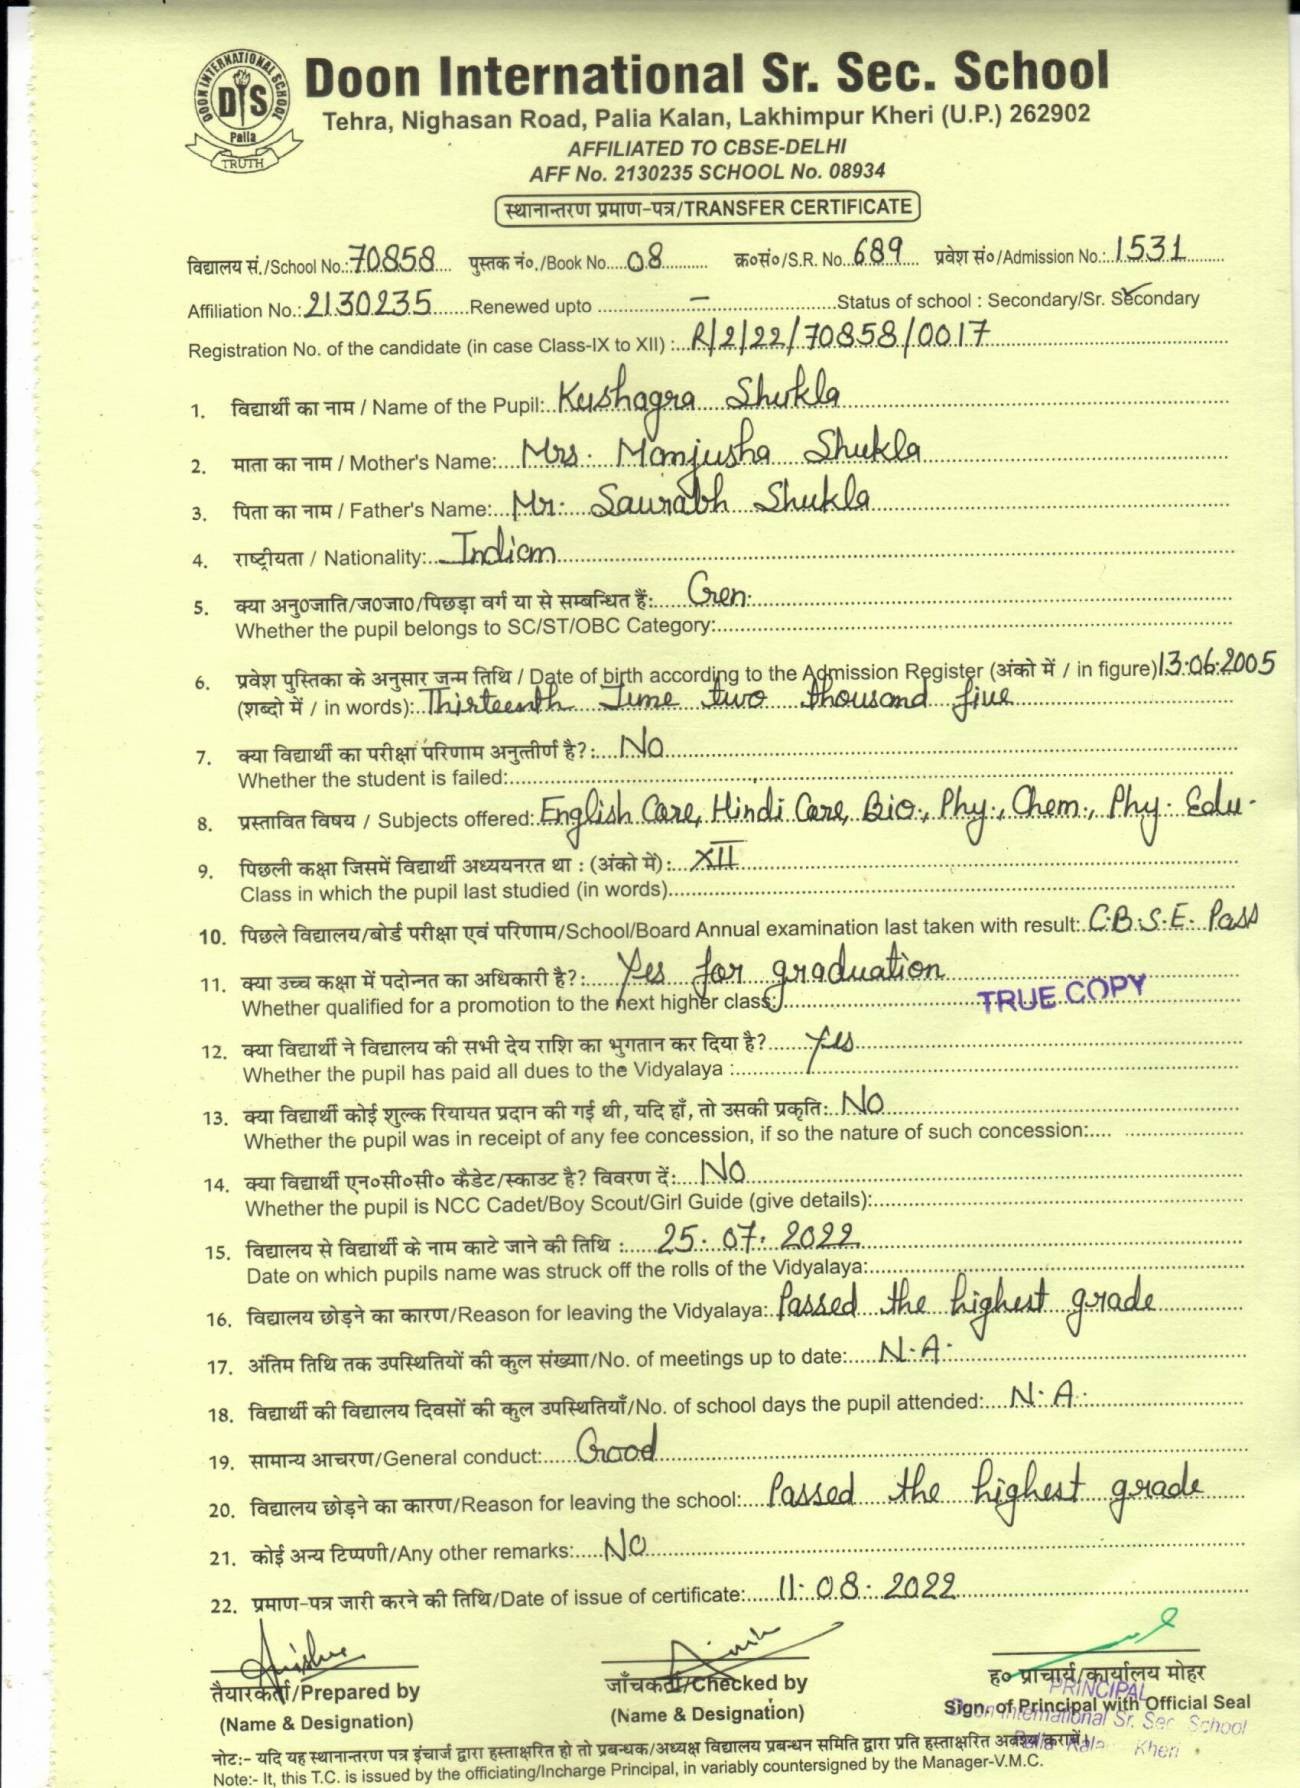 DOON INTERNATIONAL SCHOOL
DIS
Palia
TRUTH
Doon International Sr. Sec. School
Tehra, Nighasan Road, Palia Kalan, Lakhimpur Kheri (U.P.) 262902
AFFILIATED TO CBSE-DELHI
AFF No. 2130235 SCHOOL No. 08934
स्थानान्तरण प्रमाण-पत्र/TRANSFER CERTIFICATE
विद्यालय सं./School No.: 70858 पुस्तक नं०./Book No. 08 क्र०सं०/S.R. No. 689 प्रवेश सं०/Admission No.: 1531
Affiliation No.: 2130235 Renewed upto – Status of school : Secondary/Sr. Secondary
Registration No. of the candidate (in case Class-IX to XII) : R/2/22/70858/0017
1. विद्यार्थी का नाम / Name of the Pupil: Kushagra Shukla
2. माता का नाम / Mother's Name: Mrs. Manjusha Shukla
3. पिता का नाम / Father's Name: Mr. Saurabh Shukla
4. राष्ट्रीयता / Nationality: Indian
5. क्या अनु०जाति/ज०जा०/पिछड़ा वर्ग या से सम्बन्धित हैं: Gen.
Whether the pupil belongs to SC/ST/OBC Category:
6. प्रवेश पुस्तिका के अनुसार जन्म तिथि / Date of birth according to the Admission Register (अंको में / in figure) 13.06.2005
(शब्दो में / in words): Thirteenth June two thousand five
7. क्या विद्यार्थी का परीक्षा परिणाम अनुत्तीर्ण है?: No
Whether the student is failed:
8. प्रस्तावित विषय / Subjects offered: English Core, Hindi Core, Bio., Phy., Chem., Phy. Edu.
9. पिछली कक्षा जिसमें विद्यार्थी अध्ययनरत था : (अंको में) : XII
Class in which the pupil last studied (in words)
10. पिछले विद्यालय/बोर्ड परीक्षा एवं परिणाम/School/Board Annual examination last taken with result: C.B.S.E. Pass
11. क्या उच्च कक्षा में पदोन्नत का अधिकारी है?: Yes for graduation
Whether qualified for a promotion to the next higher class:
TRUE COPY
12. क्या विद्यार्थी ने विद्यालय की सभी देय राशि का भुगतान कर दिया है? Yes
Whether the pupil has paid all dues to the Vidyalaya :
13. क्या विद्यार्थी कोई शुल्क रियायत प्रदान की गई थी, यदि हाँ, तो उसकी प्रकृति: No
Whether the pupil was in receipt of any fee concession, if so the nature of such concession:
14. क्या विद्यार्थी एन०सी०सी० कैडेट/स्काउट है? विवरण दें: No
Whether the pupil is NCC Cadet/Boy Scout/Girl Guide (give details):
15. विद्यालय से विद्यार्थी के नाम काटे जाने की तिथि : 25.07.2022
Date on which pupils name was struck off the rolls of the Vidyalaya:
16. विद्यालय छोड़ने का कारण/Reason for leaving the Vidyalaya: Passed the highest grade
17. अंतिम तिथि तक उपस्थितियों की कुल संख्याा/No. of meetings up to date: N.A.
18. विद्यार्थी की विद्यालय दिवसों की कुल उपस्थितियाँ/No. of school days the pupil attended: N.A.
19. सामान्य आचरण/General conduct: Good
20. विद्यालय छोड़ने का कारण/Reason for leaving the school: Passed the highest grade
21. कोई अन्य टिप्पणी/Any other remarks: No
22. प्रमाण-पत्र जारी करने की तिथि/Date of issue of certificate: 11.08.2022
तैयारकर्ता/Prepared by जाँचकर्ता/Checked by ह० प्राचार्य/कार्यालय मोहर
(Name & Designation) (Name & Designation) Sign. of Principal with Official Seal
PRINCIPAL
Doon International Sr. Sec. School
Palia Kalan Kheri
नोट:- यदि यह स्थानान्तरण पत्र इंचार्ज द्वारा हस्ताक्षरित हो तो प्रबन्धक/अध्यक्ष विद्यालय प्रबन्धन समिति द्वारा प्रति हस्ताक्षरित अवश्य करायें।
Note:- It, this T.C. is issued by the officiating/Incharge Principal, in variably countersigned by the Manager-V.M.C.